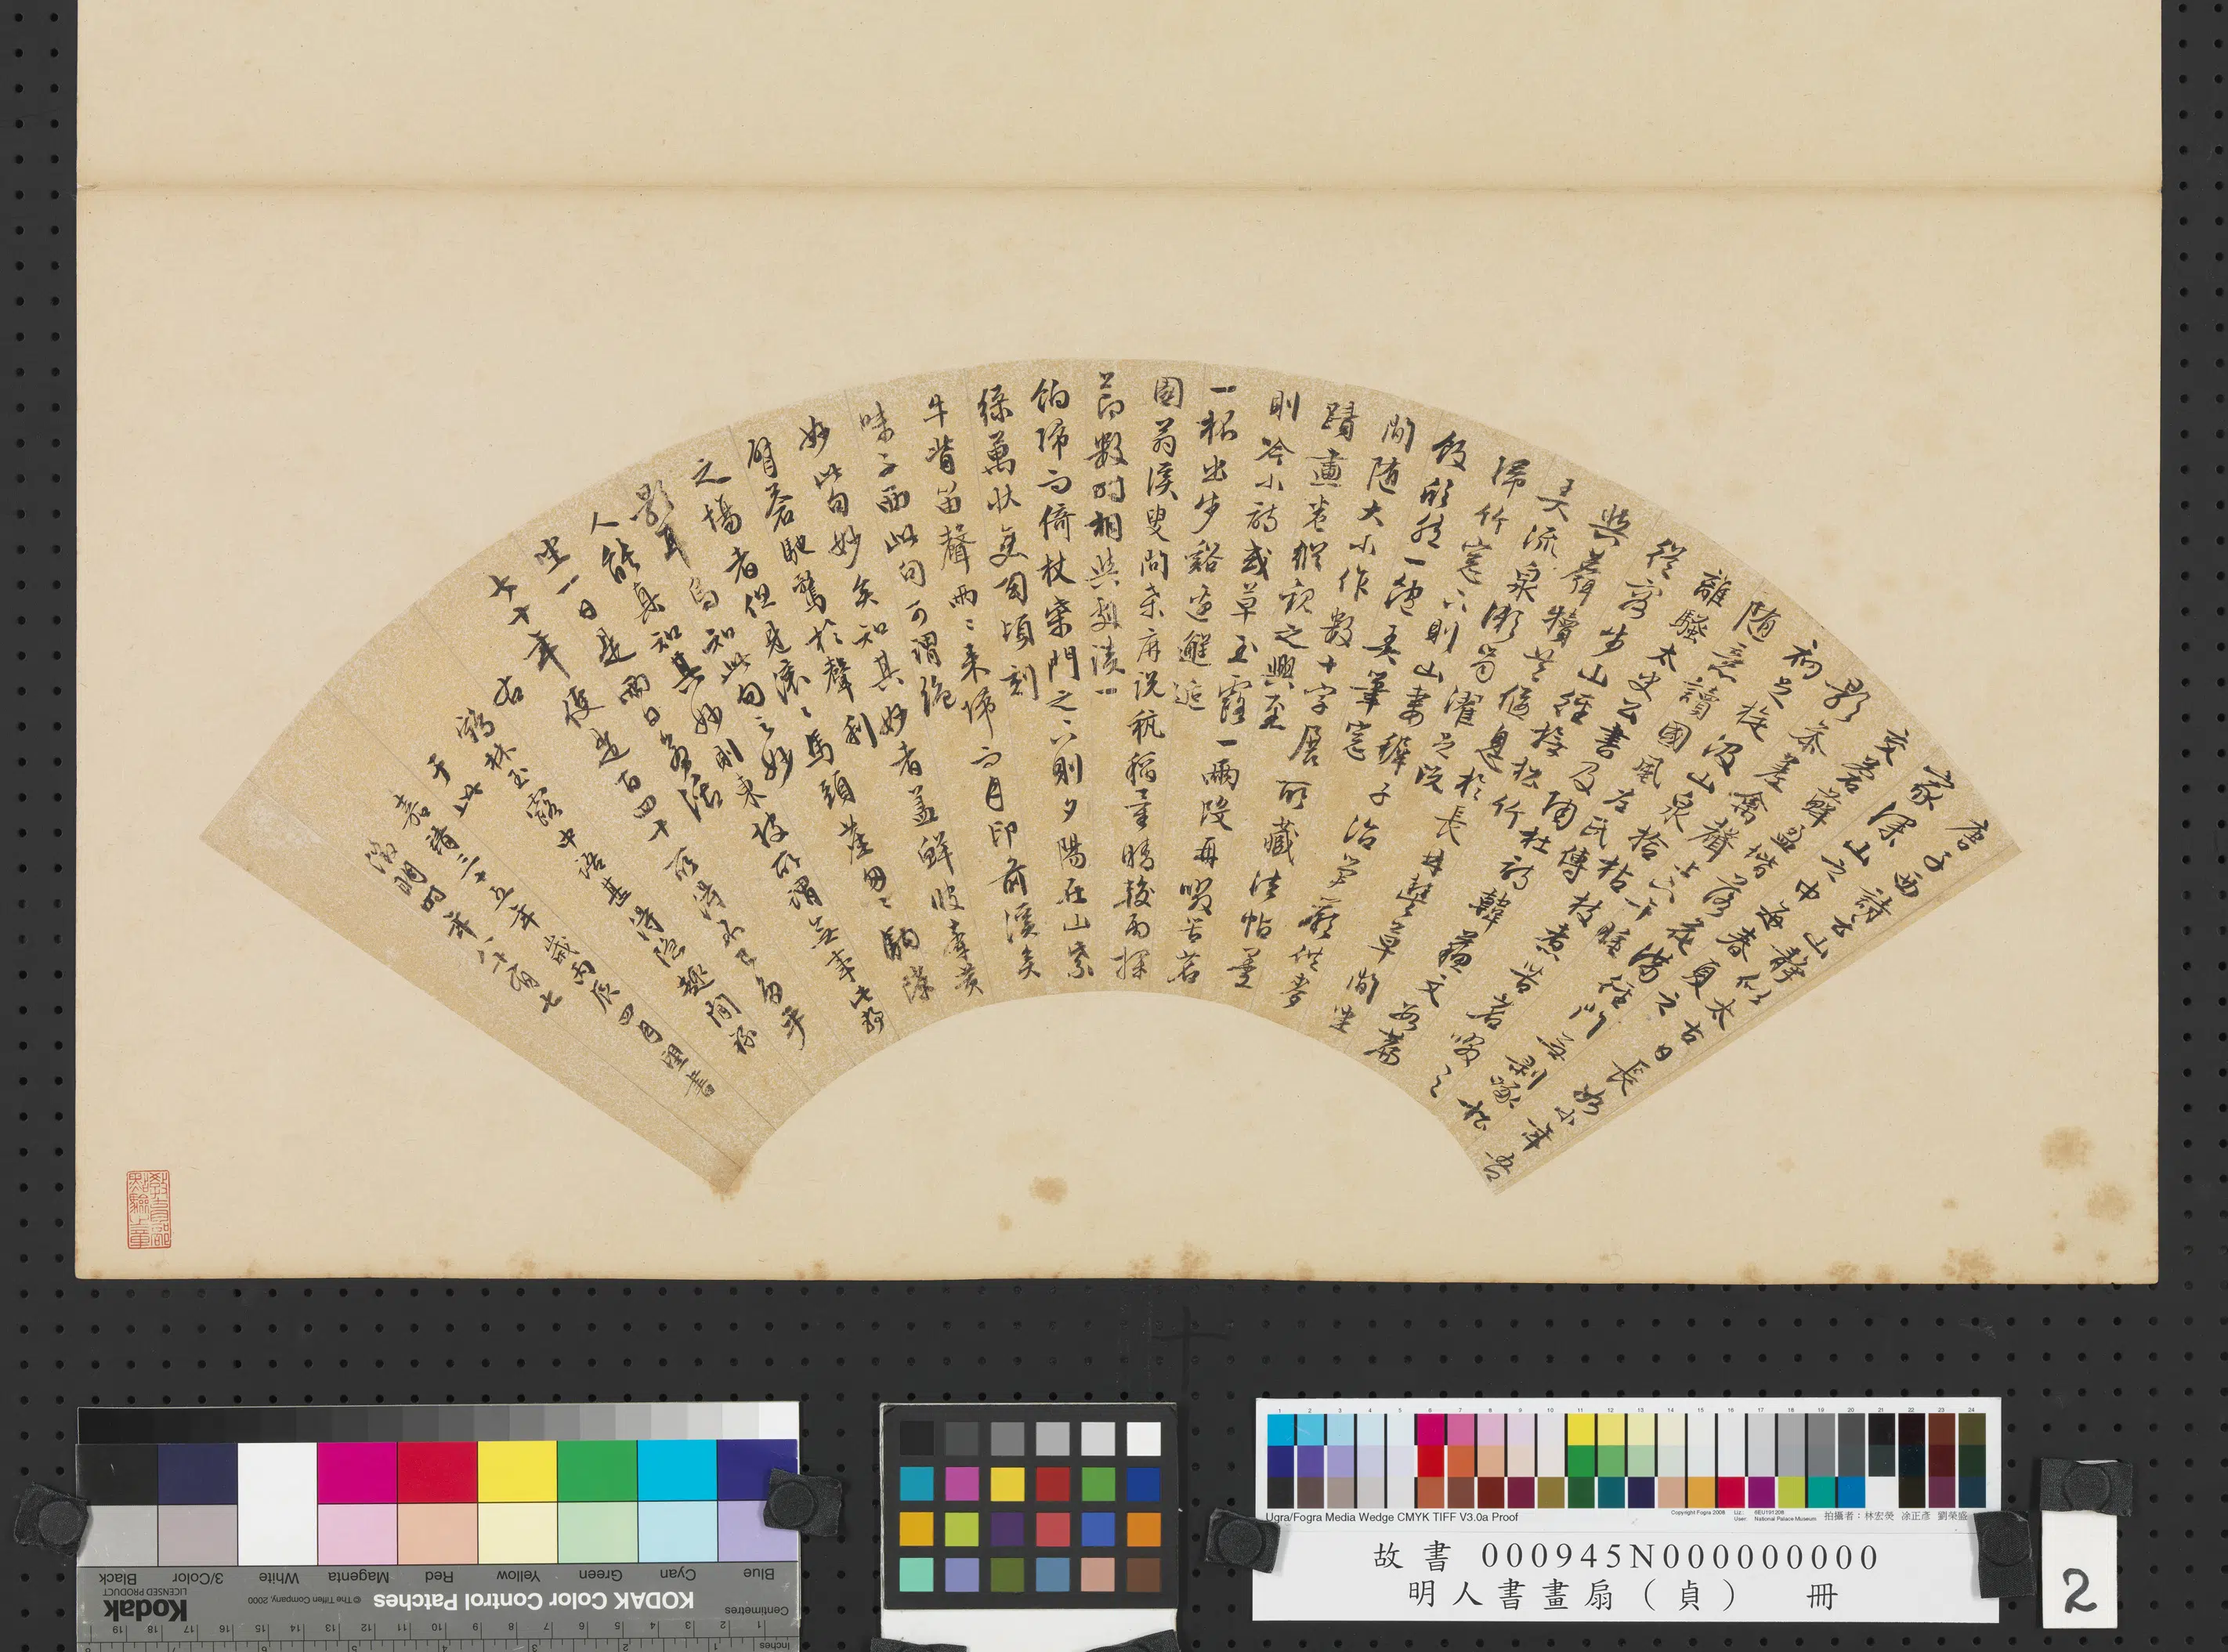 唐子西詩云山靜似太古日長如小年吾
家深山之中每春夏之
交蒼蘚盈堦落花滿徑門無剝啄松
影參差禽聲上下午睡
初足旋汲山泉拾松枝煮苦茗啜之
随意讀國風左氏傳
離騷太史公書及陶杜詩韓蘇文數篇
從容步山徑撫松竹
與麛犢共偃息於長林豐草間坐
弄流泉漱齒濯足既
歸竹窓下則山妻穉子治笋蕨供麥
飯欣然一飽弄筆窓
間随大小作數十字展所藏法帖墨
蹟畫卷縱觀之興至
則吟小詩或草玉露一兩段再啜苦茗
一杯出步谿邊邂逅
園翁溪叟問桑麻說秔稻量晴較雨探
節數時相與劇談一
餉歸而倚杖柴門之下則夕陽在山紫
綠萬狀變幻頃刻
牛背笛聲兩〻來歸而月印前溪矣
味子西此句可謂絶
妙此句妙矣知其妙者蓋鮮彼牽黃
臂蒼馳騖於聲利
之場者但見滚〻馬頭塵匆〻駒隙
影耳烏知此句之妙
人能真知其妙則東坡所謂無事此靜
坐一日是兩日若活
七十年便是百四十所得不已多乎
右鶴林玉露中語甚得隐趣間
于此
嘉靖三十五年歲丙辰四月書
徵明時年八十有七
教育部點驗之章
Ugra/Fogra Media Wedge CMYK TIFF V3.0a Proof
拍攝者：林宏熒 凃正彥 劉榮盛
故書 000945N000000000
明人書畫扇（貞） 冊
2
Blue Cyan Green Yellow Red Magenta White 3/Color Black
KODAK Color Control Patches
© The Tiffen Company, 2000
Kodak
LICENSED PRODUCT
Centimetres
Inches